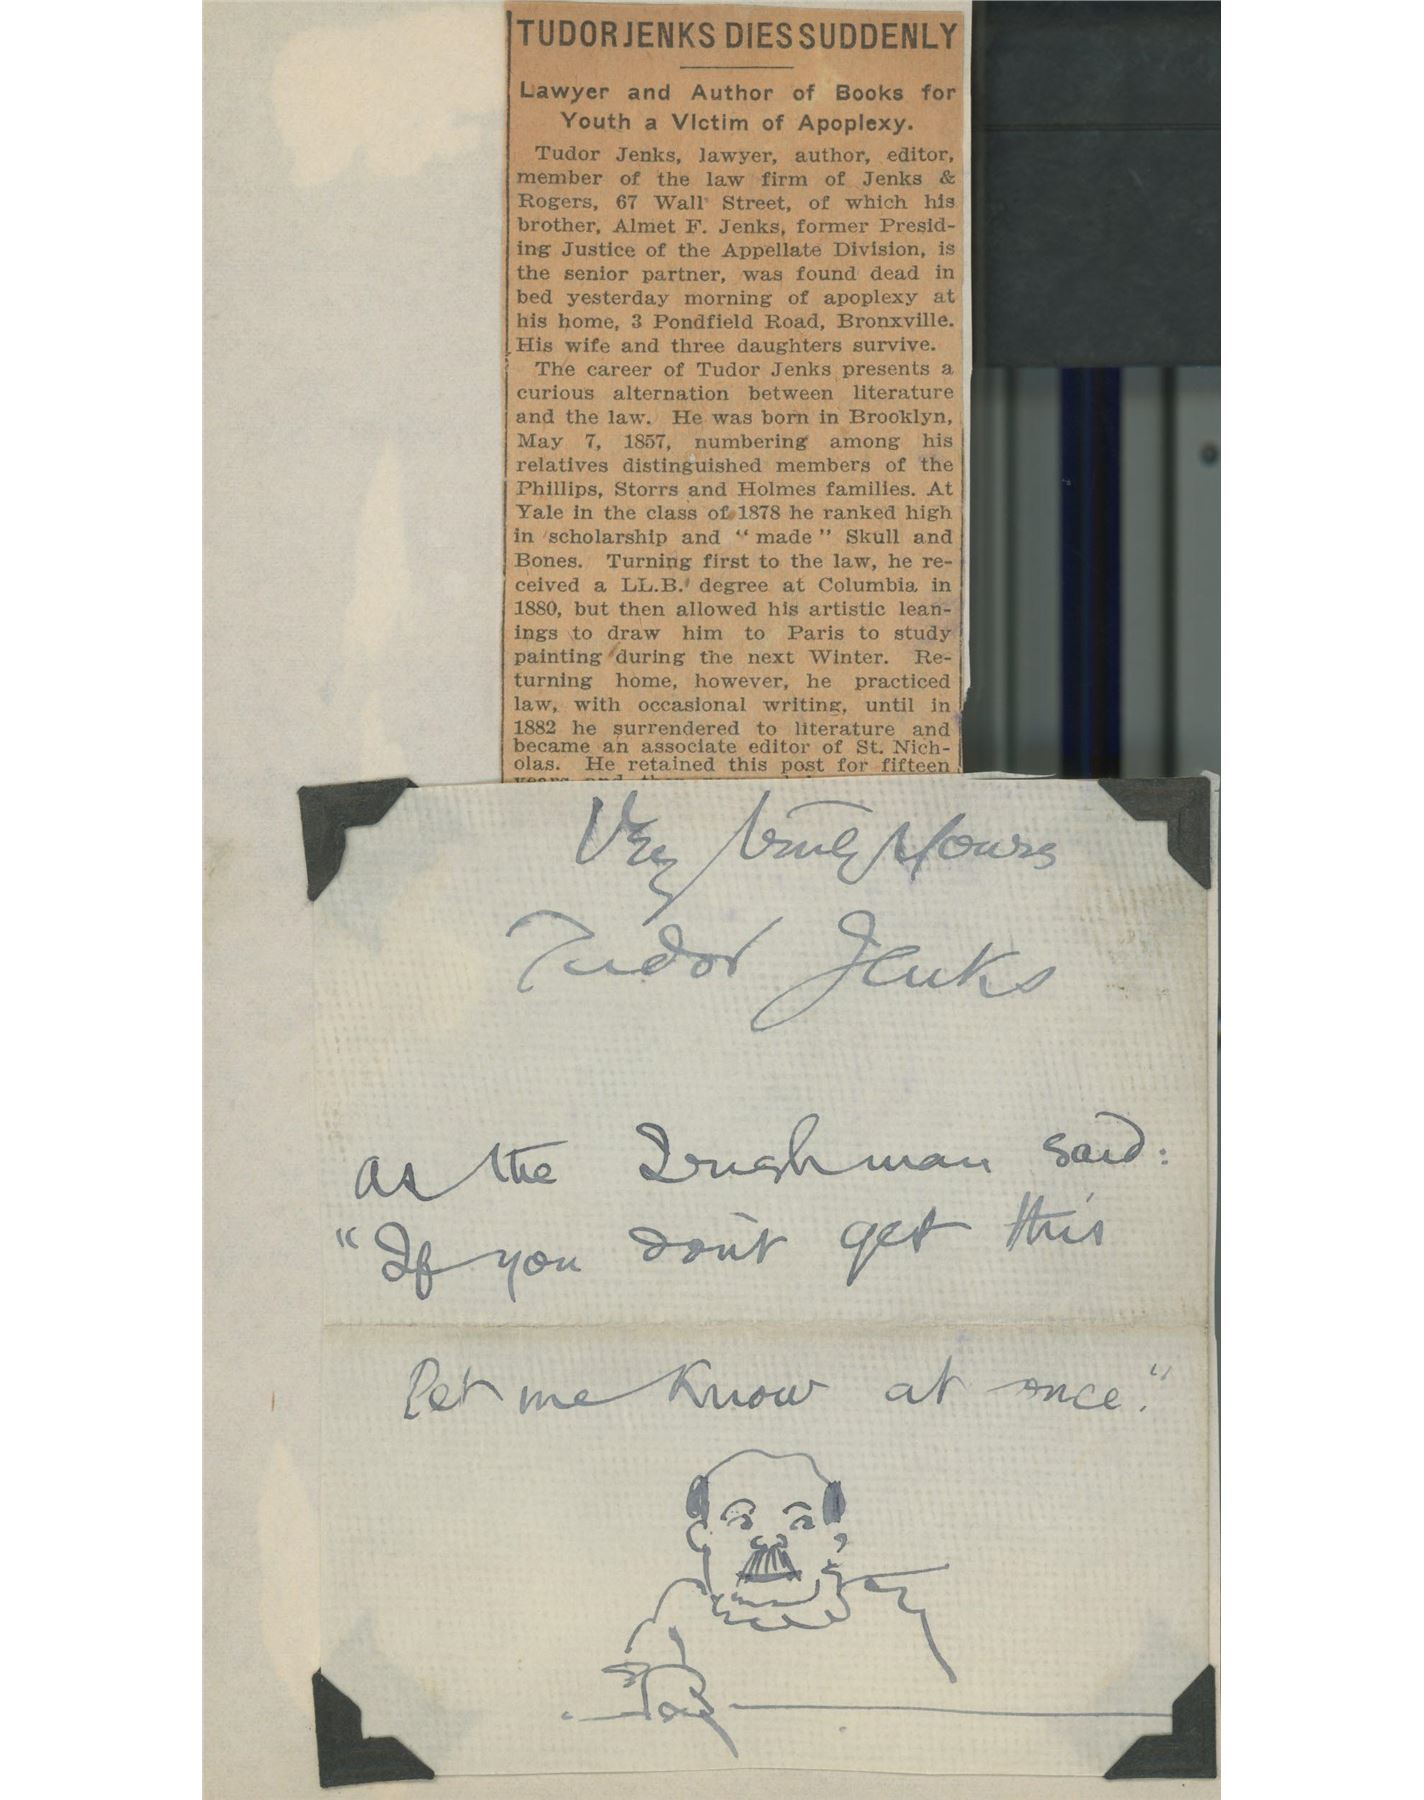 TUDOR JENKS DIES SUDDENLY
Lawyer and Author of Books for
Youth a Victim of Apoplexy.
Tudor Jenks, lawyer, author, editor,
member of the law firm of Jenks &
Rogers, 67 Wall Street, of which his
brother, Almet F. Jenks, former Presid-
ing Justice of the Appellate Division, is
the senior partner, was found dead in
bed yesterday morning of apoplexy at
his home, 3 Pondfield Road, Bronxville.
His wife and three daughters survive.
The career of Tudor Jenks presents a
curious alternation between literature
and the law. He was born in Brooklyn,
May 7, 1857, numbering among his
relatives distinguished members of the
Phillips, Storrs and Holmes families. At
Yale in the class of 1878 he ranked high
in scholarship and “made” Skull and
Bones. Turning first to the law, he re-
ceived a LL.B. degree at Columbia in
1880, but then allowed his artistic lean-
ings to draw him to Paris to study
painting during the next Winter. Re-
turning home, however, he practiced
law, with occasional writing, until in
1882 he surrendered to literature and
became an associate editor of St. Nich-
olas. He retained this post for fifteen
years and then
Very truly yours
Tudor Jenks
As the Irishman said:
“If you don't get this
let me know at once.”